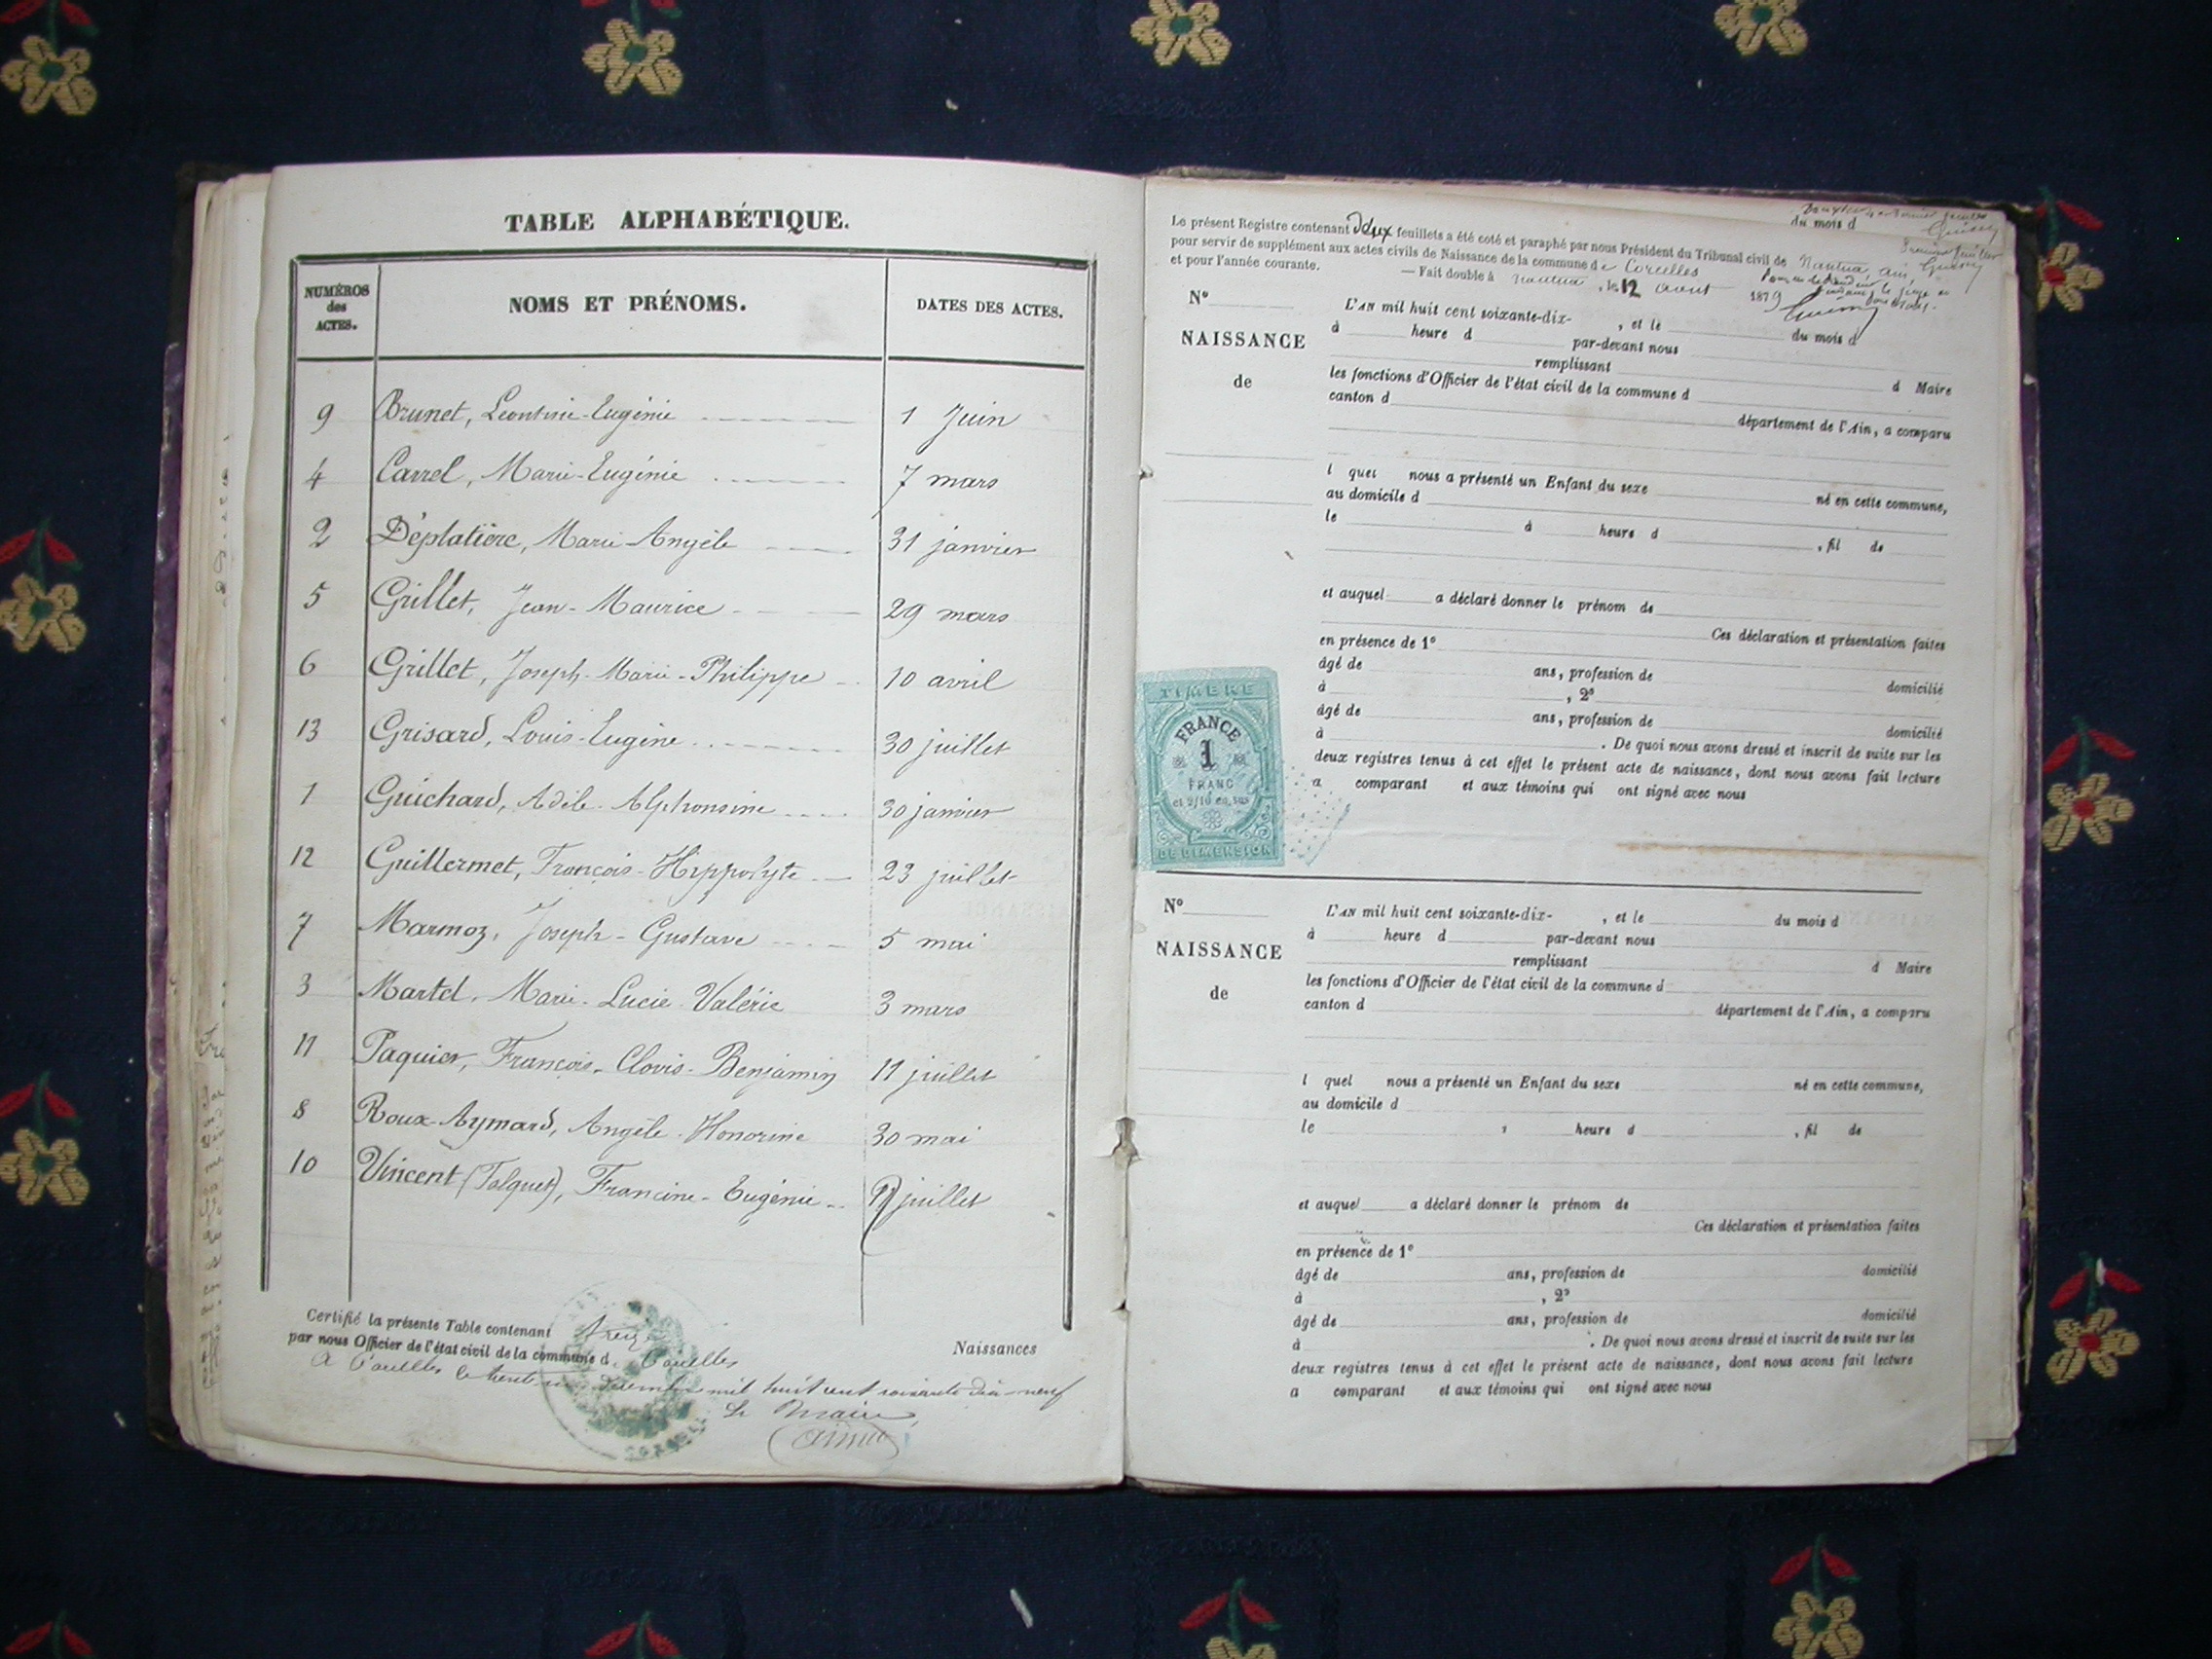 TABLE ALPHABÉTIQUE.
NUMÉROS des ACTES. NOMS ET PRÉNOMS. DATES DES ACTES.
9 Brunet, Léontine-Eugénie 1 Juin
4 Carrel, Marie-Eugénie 7 mars
2 Déplatière, Marie-Angèle 31 janvier
5 Grillet, Jean-Maurice 29 mars
6 Grillet, Joseph-Marie-Philippe 10 avril
13 Grisard, Louis-Eugène 30 juillet
1 Guichard, Adèle-Alphonsine 30 janvier
12 Guillermet, François-Hippolyte 23 juillet
7 Marmoz, Joseph-Gustave 5 mai
3 Martel, Marie-Lucie-Valérie 3 mars
11 Paquier, François-Clovis-Benjamin 11 juillet
8 Roux-Aymard, Angèle-Honorine 30 mai
10 Vincent (Talguet), Francine-Eugénie juillet
Certifié la présente Table contenant treize Naissances
par nous Officier de l'état civil de la commune d. Corcelles
A Corcelles le trente-un décembre mil huit cent soixante dix-neuf
Le Maire
du mois d
Le présent Registre contenant Deux feuillets a été coté et paraphé par nous Président du Tribunal civil de Nantua
pour servir de supplément aux actes civils de Naissance de la commune de Corcelles
et pour l'année courante. — Fait double à Nantua, le 12 aout 1879
N°
NAISSANCE
de
L'AN mil huit cent soixante-dix- , et le du mois d
à heure d par-devant nous
remplissant d Maire
les fonctions d'Officier de l'état civil de la commune d
canton d département de l'Ain, a comparu
l quel nous a présenté un Enfant du sexe né en cette commune,
au domicile d
le à heure d , fil de
et auquel a déclaré donner le prénom de
Ces déclaration et présentation faites
en présence de 1°
âgé de ans, profession de domicilié
à , 2°
âgé de ans, profession de domicilié
à . De quoi nous avons dressé et inscrit de suite sur les
deux registres tenus à cet effet le présent acte de naissance, dont nous avons fait lecture
a comparant et aux témoins qui ont signé avec nous
TIMBRE
FRANCE
1
FRANC
et 2/10 en sus
DE DIMENSION
N°
NAISSANCE
de
L'AN mil huit cent soixante-dix- , et le du mois d
à heure d par-devant nous
remplissant d Maire
les fonctions d'Officier de l'état civil de la commune d
canton d département de l'Ain, a comparu
l quel nous a présenté un Enfant du sexe né en cette commune,
au domicile d
le , heure d , fil de
et auquel a déclaré donner le prénom de
Ces déclaration et présentation faites
en présence de 1°
âgé de ans, profession de domicilié
à , 2°
âgé de ans, profession de domicilié
à . De quoi nous avons dressé et inscrit de suite sur les
deux registres tenus à cet effet le présent acte de naissance, dont nous avons fait lecture
a comparant et aux témoins qui ont signé avec nous